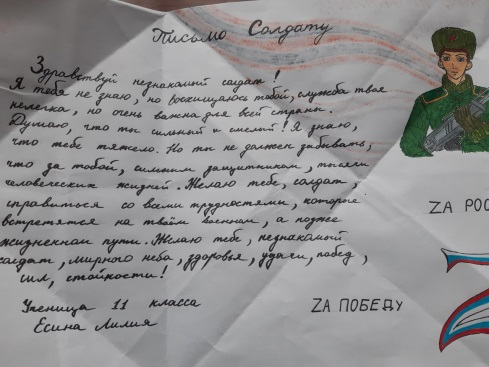 Письмо Солдату
Здравствуй незнакомый солдат!
Я тебя не знаю, но восхищаюсь тобой, служба твоя
нелегка, но очень важна для всей страны.
Думаю, что ты сильный и смелый! Я знаю,
что тебе тяжело. Но ты не должен забывать,
что за тобой, сильным защитником, тысячи
человеческих жизней. Желаю тебе, солдат,
справиться со всеми трудностями, которые
встретятся на твоём военном, а позже
жизненном пути. Желаю тебе, незнакомый
солдат, мирного неба, здоровья, удачи, побед,
сил, стойкости!
Ученица 11 класса
Есина Лилия
ZА РОС
ZА ПОБЕДУ